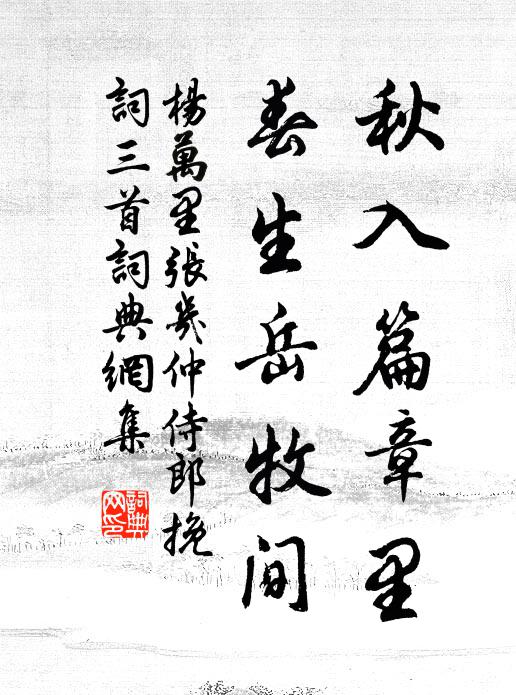 秋入篇章里
春生岳牧間
楊萬里張幾仲侍郎挽
詞三首詞典網集
詞典网印